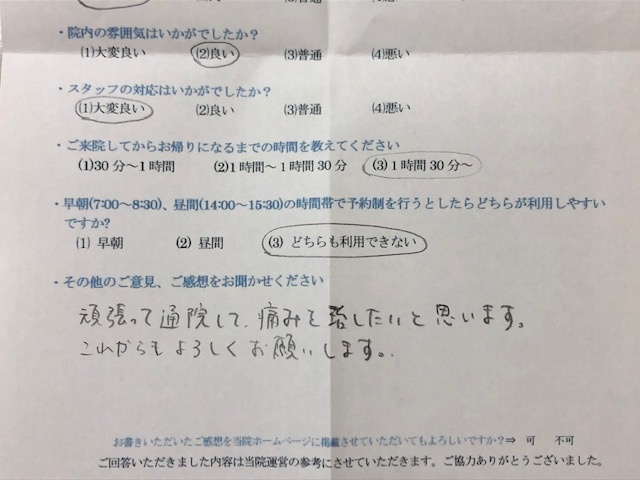 ・院内の雰囲気はいかがでしたか？
(1)大変良い (2)良い (3)普通 (4)悪い
・スタッフの対応はいかがでしたか？
(1)大変良い (2)良い (3)普通 (4)悪い
・ご来院してからお帰りになるまでの時間を教えてください
(1)30分～1時間 (2)1時間～1時間30分 (3)1時間30分～
・早朝(7:00～8:30)、昼間(14:00～15:30)の時間帯で予約制を行うとしたらどちらが利用しやすい
ですか？
(1) 早朝 (2) 昼間 (3) どちらも利用できない
・その他のご意見、ご感想をお聞かせください
頑張って通院して、痛みを治したいと思います。
これからもよろしくお願いします。
お書きいただいたご感想を当院ホームページに掲載させていただいてもよろしいですか？⇒ 可 不可
ご回答いただきました内容は当院運営の参考にさせていただきます。ご協力ありがとうございました。